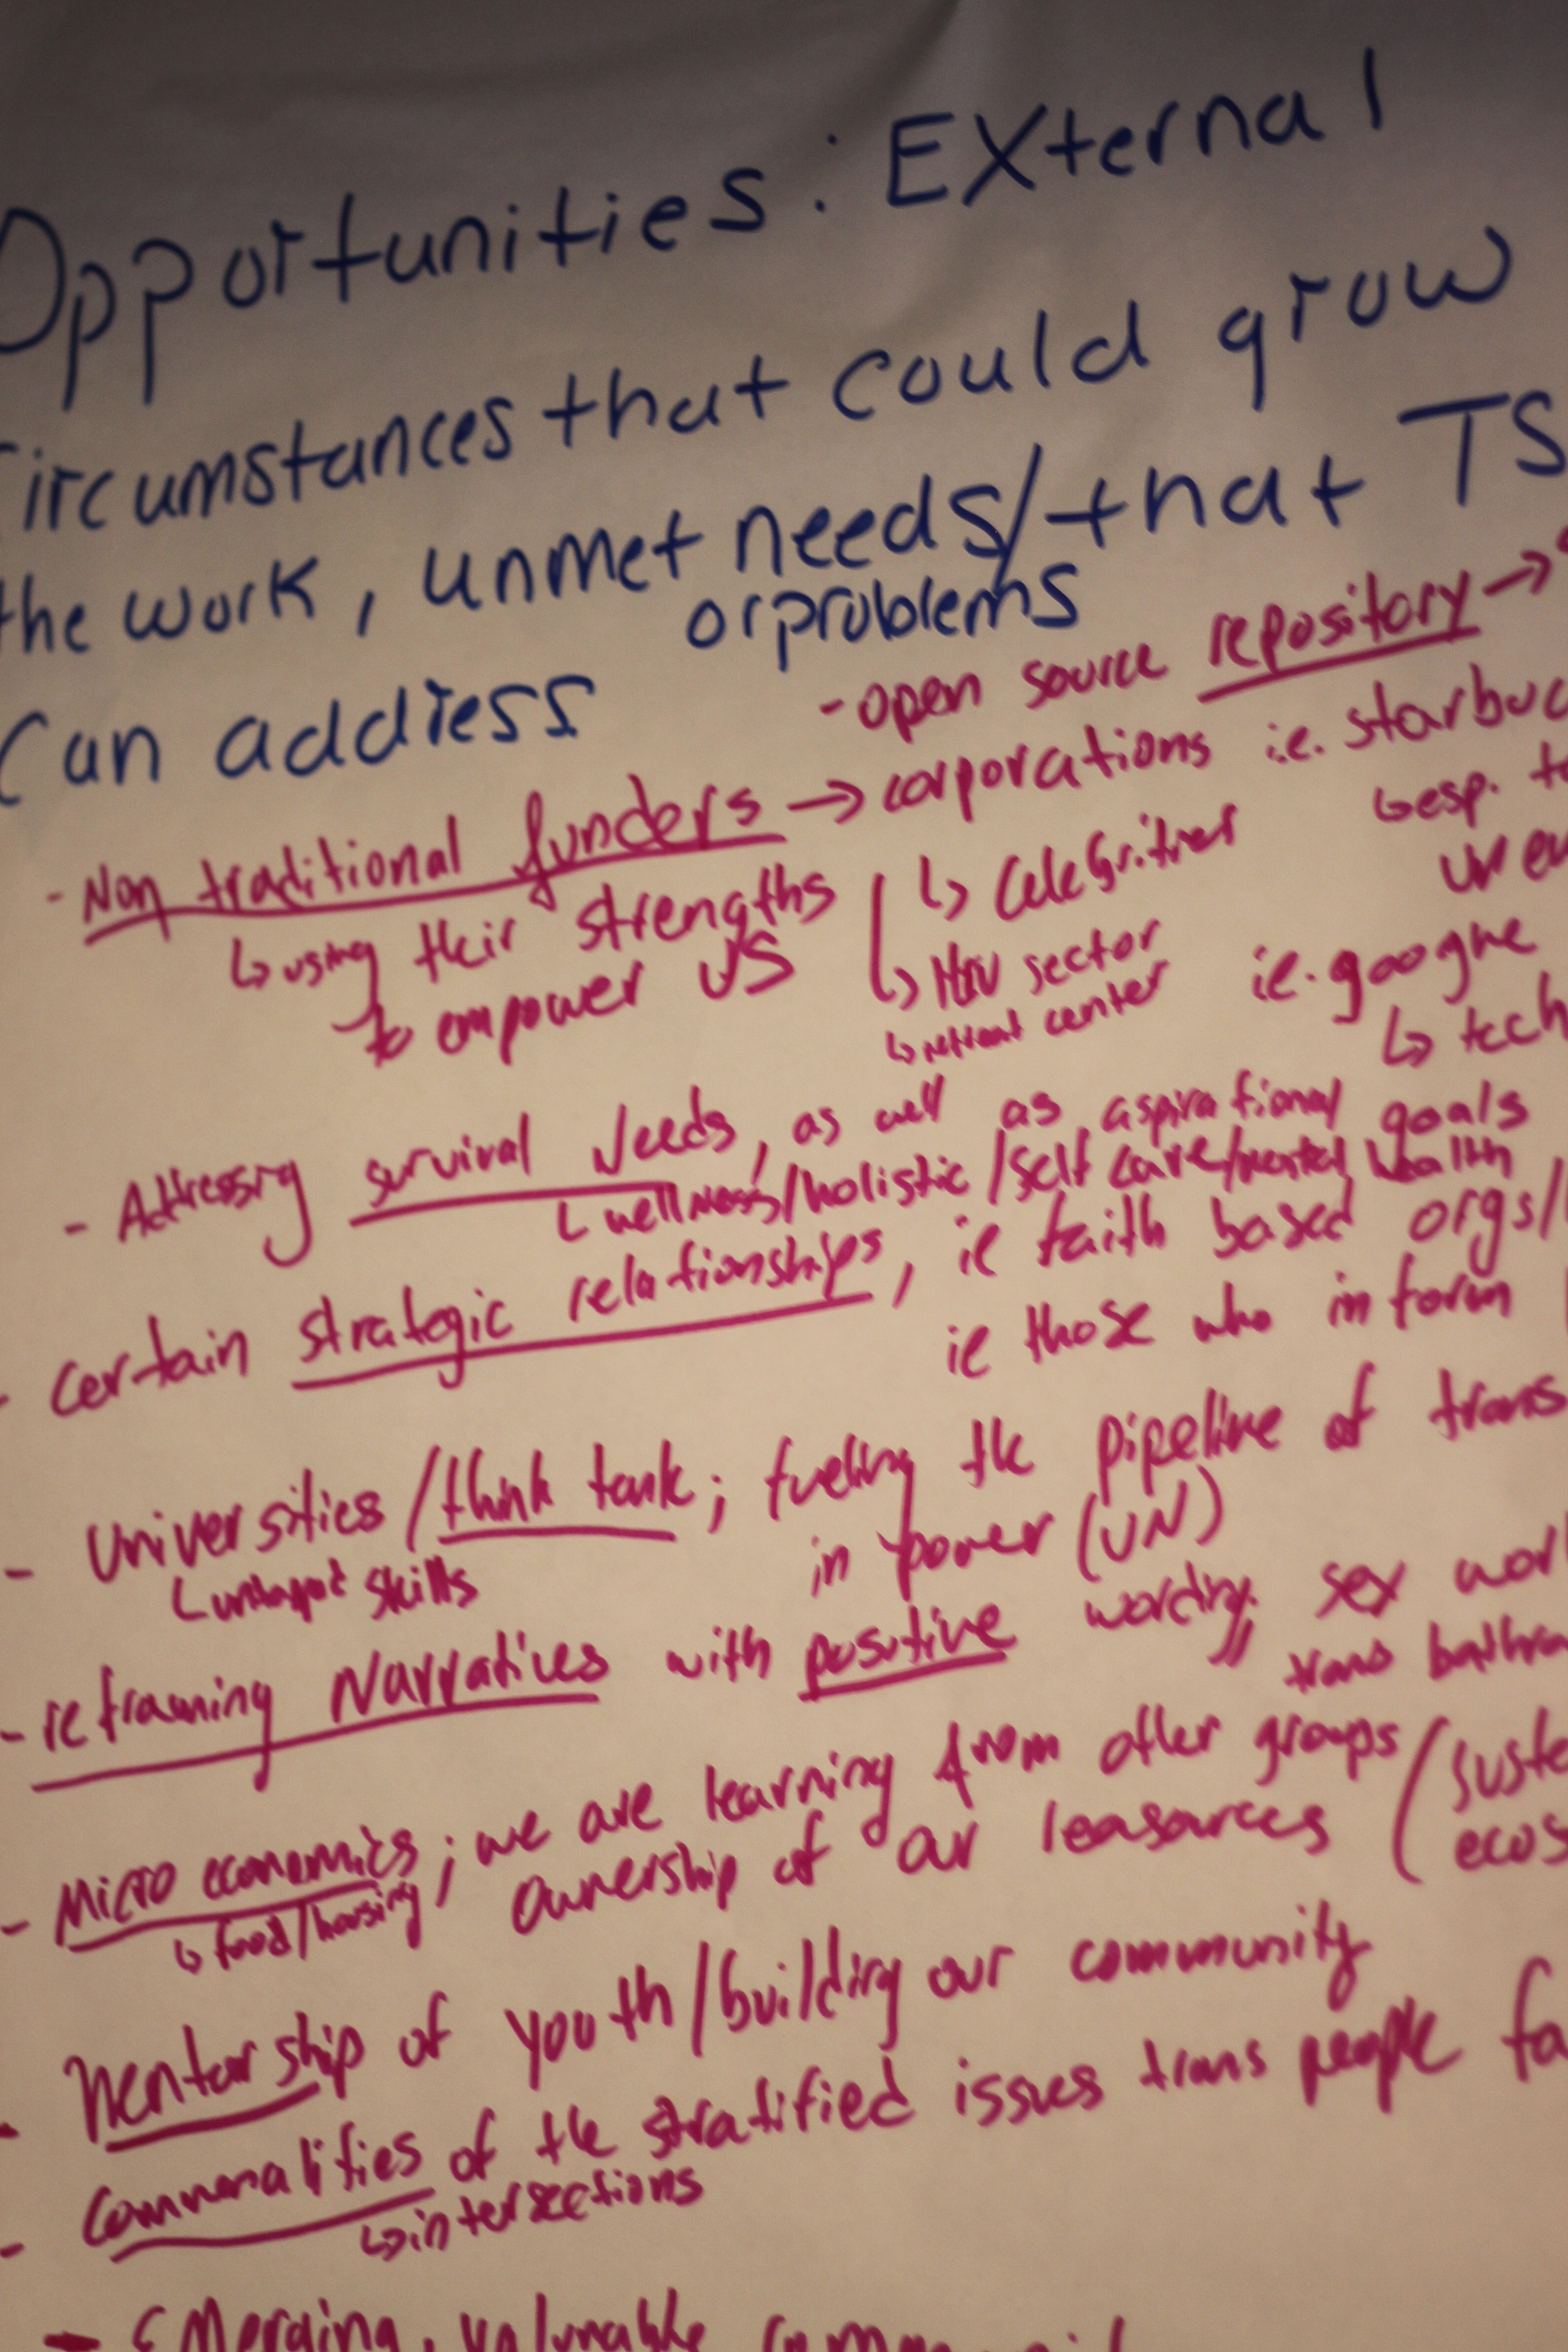 Opportunities: External
Circumstances that could grow
the work, unmet needs/that TS
or problems
Can address
- open source repository →
- Non traditional funders → corporations i.e. starbuc
↳ using their strengths
to empower US
↳ Celebrities
↳ esp. t
↳ HIV sector
↳ retreat center
i.e. googne
↳ tech
- Addressing survival Needs, as well as aspirational goals
↳ wellness/holistic/self care/mental health
- certain strategic relationships, ie faith based orgs/
ie those who inform
- Universities/think tank; fueling the pipeline of trans
↳ untapt skills
in power (UN)
- reframing Narratives with positive wording, sex wor
trans bathro
- Micro economics; we are learning from other groups (suste
↳ food/housing
ownership of our leasources
ecos
- Mentorship of youth/building our community
- Commonalities of the stratified issues trans people fa
↳ intersections
- EMerging, valunable